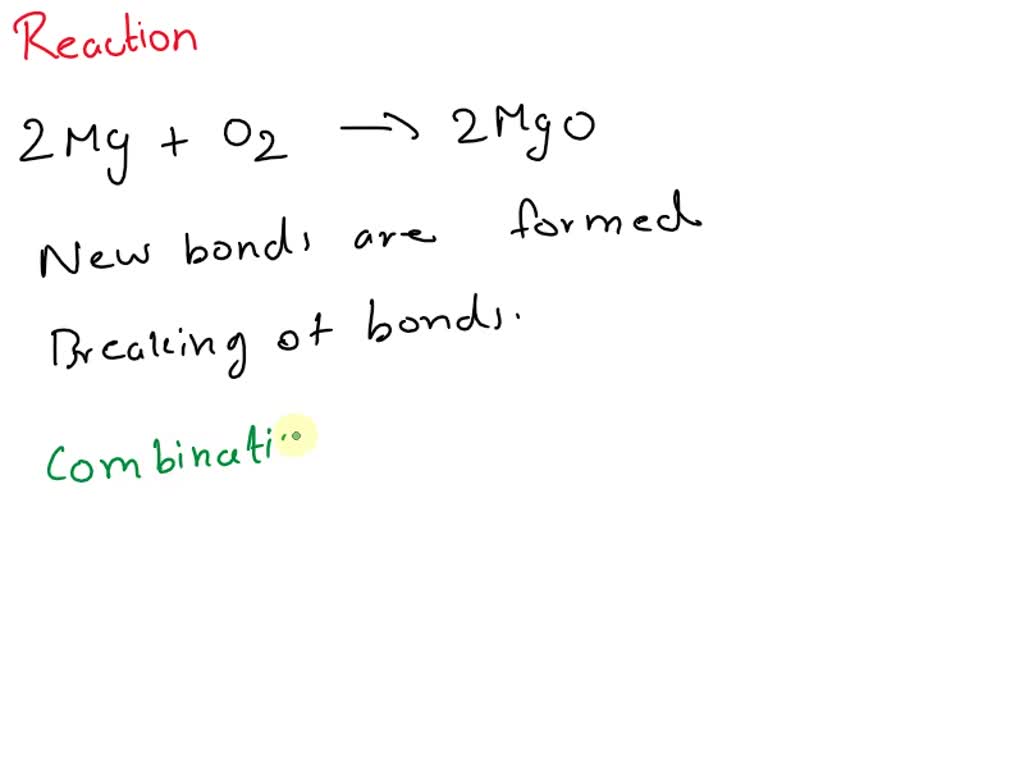 Reaction
2Mg + O2 → 2MgO
New bonds are formed
Breaking of bonds.
Combinati